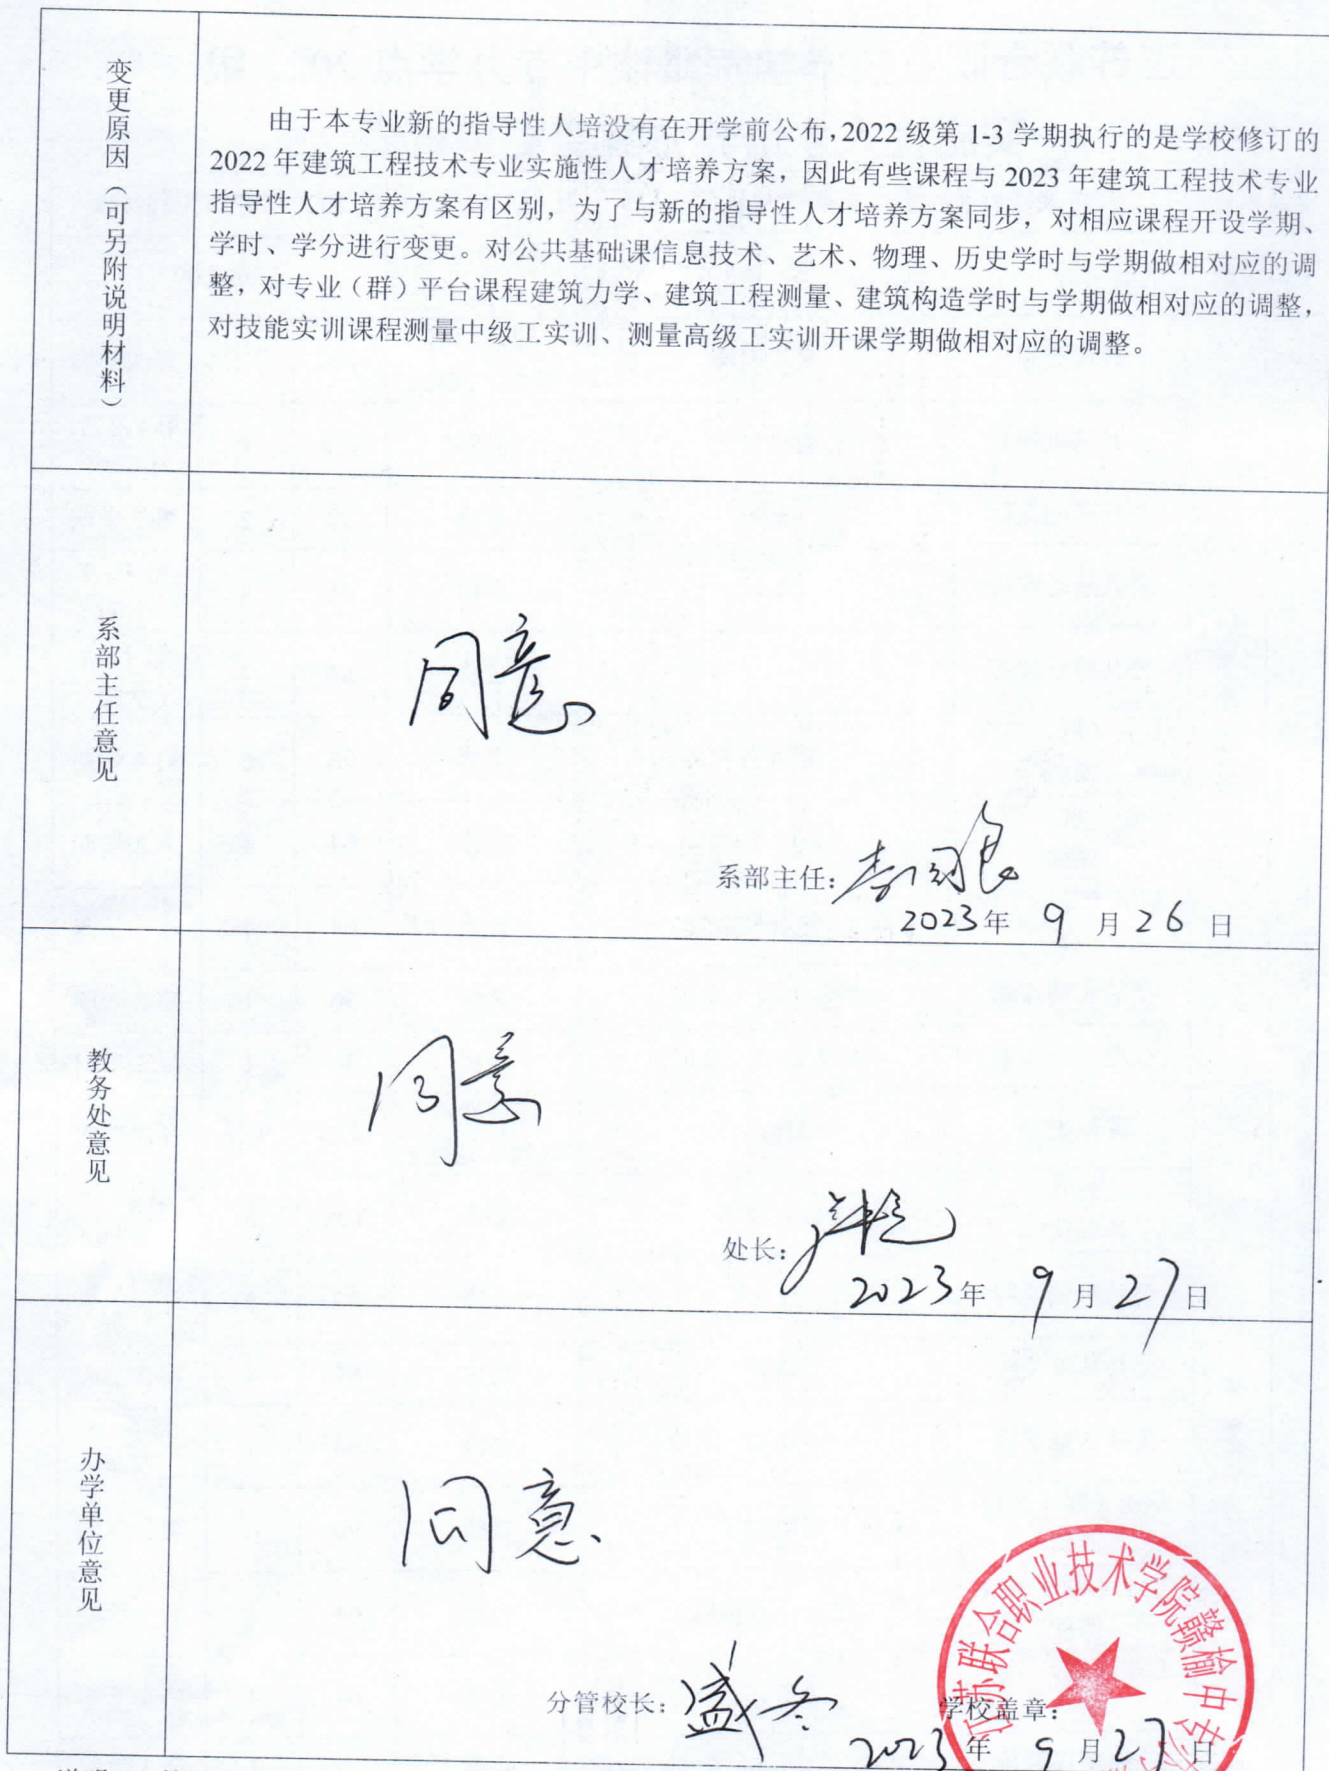 变更原因（可另附说明材料）
由于本专业新的指导性人培没有在开学前公布，2022 级第 1-3 学期执行的是学校修订的
2022 年建筑工程技术专业实施性人才培养方案，因此有些课程与 2023 年建筑工程技术专业
指导性人才培养方案有区别，为了与新的指导性人才培养方案同步，对相应课程开设学期、
学时、学分进行变更。对公共基础课信息技术、艺术、物理、历史学时与学期做相对应的调
整，对专业（群）平台课程建筑力学、建筑工程测量、建筑构造学时与学期做相对应的调整，
对技能实训课程测量中级工实训、测量高级工实训开课学期做相对应的调整。
系部主任意见
同意
系部主任：
2023年 9 月 26 日
教务处意见
同意
处长：
2023年 9 月 27 日
办学单位意见
同意
分管校长：盛冬
学校盖章：
2023年 9 月 27 日
江苏联合职业技术学院赣榆中专